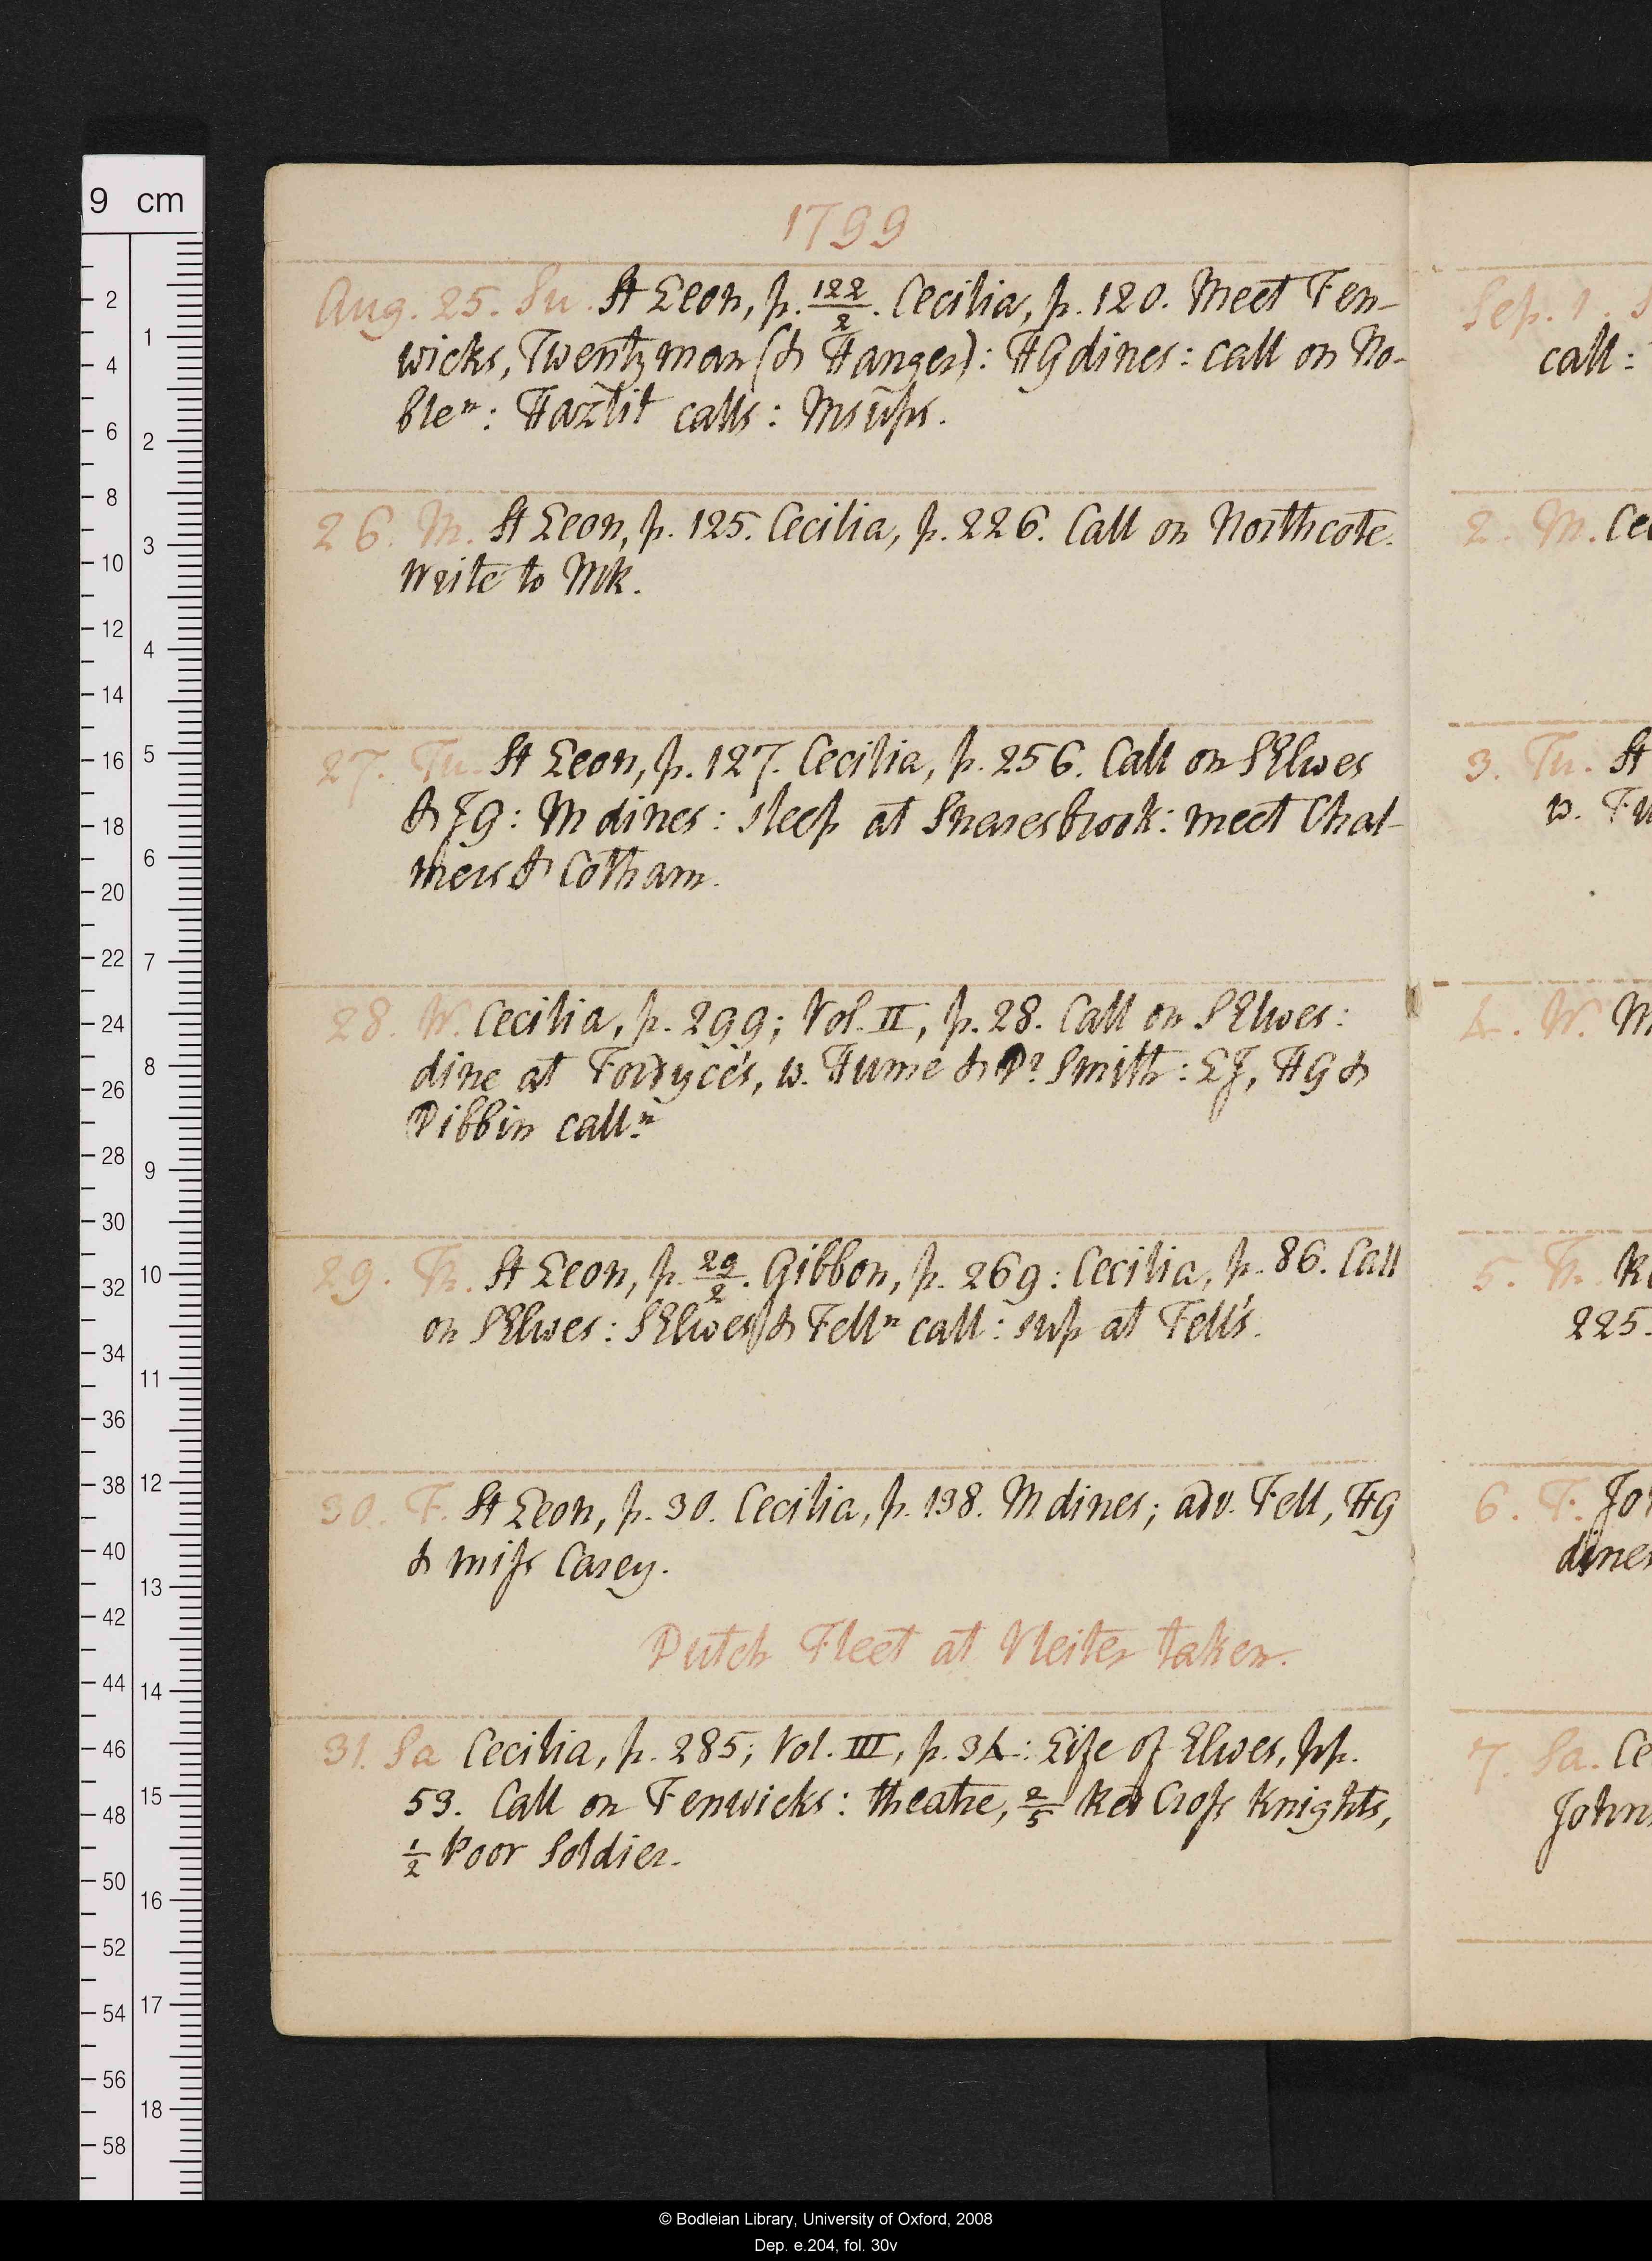 1799
Aug. 25. Su. St Leon, p. 122/2. Cecilia, p. 120. Meet Fen-
wicks, Twentyman (& Hanger): HG dines: call on No-
ble n: Hazlit calls: M sups.
26. M. St Leon, p. 125. Cecilia, p. 226. Call on Northcote.
Write to Mk.
27. Tu. St Leon, p. 127. Cecilia, p. 256. Call on SElwes
& JG: M dines: sleep at Snaresbrook: meet Chal-
mers & Cotham.
28. W. Cecilia, p. 299; Vol. II, p. 28. Call on SElwes:
dine at Fordyce's, w. Hume & Dr Smith: LJ, HG &
Dibbin call n.
29. Th. St Leon, p. 29/2. Gibbon, p. 269: Cecilia, p. 86. Call
on SElwes: SElwes & Fell n call: sup at Fell's.
30. F. St Leon, p. 30. Cecilia, p. 138. M dines; adv. Fell, HG
& miss Carey.
Dutch Fleet at Vleiter taken.
31. Sa Cecilia, p. 285; Vol. III, p. 34: Life of Elwes, pp.
53. Call on Fenwicks: theatre, 2/5 Red Cross Knights,
1/2 Poor Soldier.
Sep. 1. S
call:
2. M. Ce
3. Tu. St
w. Fu
4. W. M
5. Th.
225.
6. F. Jo
dines
7. Sa. Ce
John
9 cm
2
4
6
8
10
12
14
16
18
20
22
24
26
28
30
32
34
36
38
40
42
44
46
48
50
52
54
56
58
1
2
3
4
5
6
7
8
9
10
11
12
13
14
15
16
17
18
© Bodleian Library, University of Oxford, 2008
Dep. e.204, fol. 30v